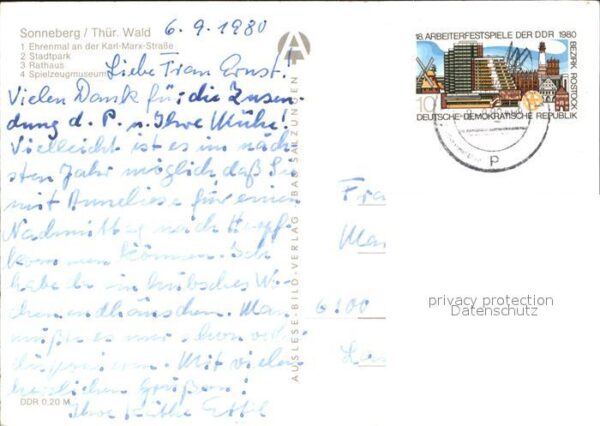 Sonneberg / Thür. Wald
6.9.1980
1 Ehrenmal an der Karl-Marx-Straße
2 Stadtpark
3 Rathaus
4 Spielzeugmuseum
Liebe Frau Ernst!
Vielen Dank für die Zusen-
dung d. P. u. Ihre Mühe!
Vielleicht ist es im näch-
sten Jahr möglich, daß Sie
mit Anneliese für einen
Nachmittag nach
kommen können. Ich
habe da ein hübsches Wo-
chenendhäuschen. Man
müßte es nur schon vor
. Mit vielen
herzlichen Grüßen!
Ihre Käthe
DDR 0,20 M
AUSLESE-BILD-VERLAG BAD SALZUNGEN
A
18. ARBEITERFESTSPIELE DER DDR 1980
BEZIRK ROSTOCK
10
DEUTSCHE DEMOKRATISCHE REPUBLIK
P
Fra
Ma
6100
privacy protection
Datenschutz